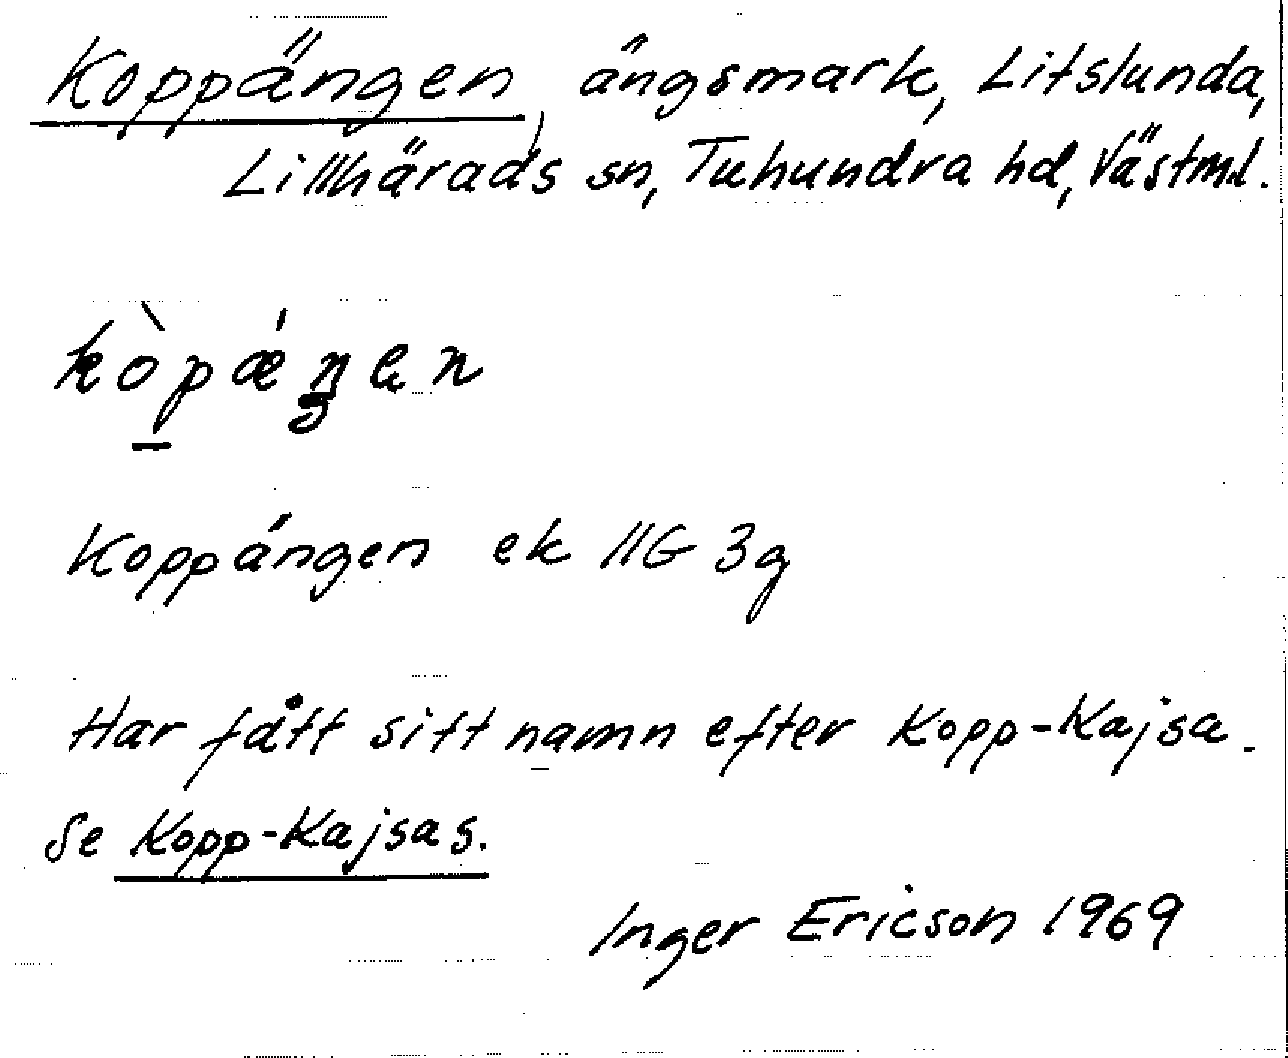 Koppängen, ängsmark, Litslunda,
Lillhärads sn, Tuhundra hd, Västml.
kòpǽŋen
Koppängen ek 11G 3g
Har fått sitt namn efter Kopp-Kajsa.
Se Kopp-Kajsas.
Inger Ericson 1969